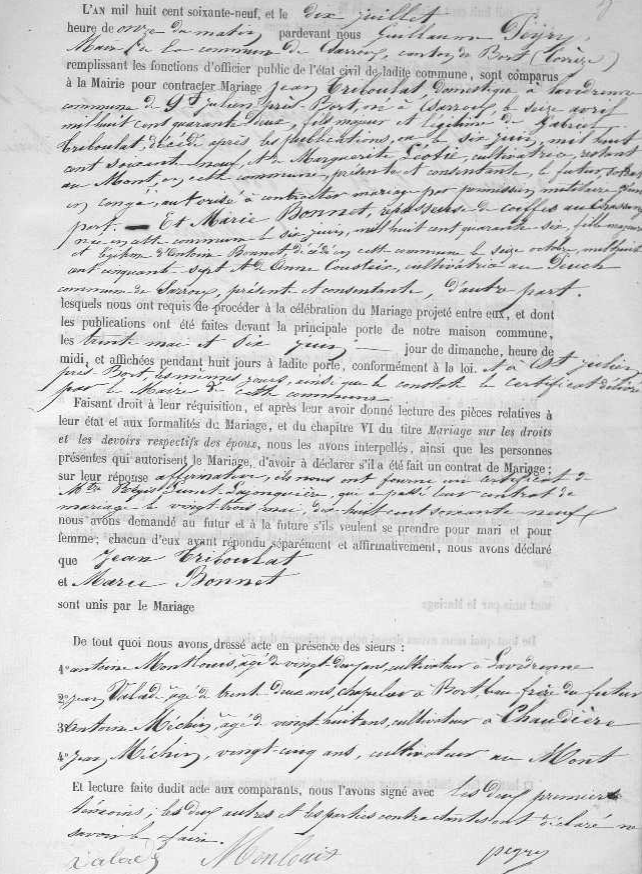 L'AN mil huit cent soixante-neuf, et le dix juillet
heure de onze du matin pardevant nous Guillaume Peyry,
Maire de la commune de Sarroux, canton de Bort (Corrèze)
remplissant les fonctions d'officier public de l'état civil de ladite commune, sont comparus
à la Mairie pour contracter Mariage Jean Triboulat domestique à Lavedrenne
commune de St Julien près Bort, né à Sarroux le seize avril
mil huit cent quarante deux, fils majeur et légitime de Gabriel
Triboulat, décédé après les publications, le six juin, mil huit
cent soixante neuf, & de Marguerite, cultivatrice, restant
au Mont, en cette commune, présente et consentante, le futur, soldat
en congé, autorisé à contracter mariage par permission militaire d'une
part. — Et Marie Bonnet, repasseuse de coiffes au
née en cette commune le six juin, mil huit cent quarante six, fille majeure
et légitime d'Antoine Bonnet décédé en cette commune le seize octobre, mil huit
cent cinquante sept & de Anne, cultivatrice au Puech
commune de Sarroux, présente et consentante, d'autre part.
lesquels nous ont requis de procéder à la célébration du Mariage projeté entre eux, et dont
les publications ont été faites devant la principale porte de notre maison commune,
les trente mai et six juin jour de dimanche, heure de
midi, et affichées pendant huit jours à ladite porte, conformément à la loi. & à St Julien
près Bort les mêmes jours, ainsi que le constate le certificat délivré
par le Maire de cette commune
Faisant droit à leur réquisition, et après leur avoir donné lecture des pièces relatives à
leur état et aux formalités du Mariage, et du chapitre VI du titre Mariage sur les droits
et les devoirs respectifs des époux, nous les avons interpellés, ainsi que les personnes
présentes qui autorisent le Mariage, d'avoir à déclarer s'il a été fait un contrat de Mariage;
sur leur réponse affirmative, ils nous ont fourni un certificat de
Mtre, qui a passé leur contrat de
mariage le vingt trois mai, dix huit cent soixante neuf
nous avons demandé au futur et à la future s'ils veulent se prendre pour mari et pour
femme; chacun d'eux ayant répondu séparément et affirmativement, nous avons déclaré
que Jean Triboulat
et Marie Bonnet
sont unis par le Mariage
De tout quoi nous avons dressé acte en présence des sieurs :
1o antoine Monlouis, âgé de vingt deux ans, cultivateur à Lavedrenne
2o Jean Valade âgé de trente deux ans, chapelier à Bort, beau frère du futur
3o Antoine Michin, âgé de vingt huit ans, cultivateur à Chaudière
4o Jean Michin, vingt-cinq ans, cultivateur au Mont
Et lecture faite dudit acte aux comparants, nous l'avons signé avec les deux premiers
témoins; les deux autres et les parties contractantes ont déclaré ne
savoir le faire.
Valade Monlouis peyry